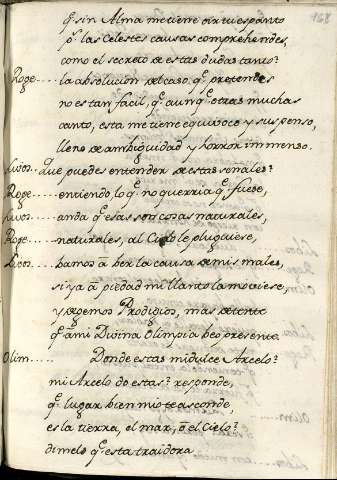 168
q̃ sin Alma me tiene oir tu espanto
p.ʳ las Celestes causas comprehendes,
como el secreto de estas dudas tanto?
Roge..... la absolucion del caso, q̃ pretendes
no es tan facil, q̃ aunq̃ otras muchas
canto, esta me tiene equivoco y suspenso,
lleno de ambiguidad y horror inmenso.
que puedes entender de estas señales?
Roge..... entiendo lo q̃ no querria q̃ fuese,
anda q̃ esas son cosas naturales,
Roge..... naturales, al Cielo le pluguiese,
bamos a ber la causa de mis males,
si ya a piedad mi llanto la moviese,
y dejemos Prodigios, mas detente
q̃ a mi Divina Olimpia beo presente
Olim..... Donde estas mi dulce Arcelo?
mi Arcelo do estas? responde,
q̃ lugar bien mio te asconde,
es la tierra, el mar, o el Cielo?
dimelo q̃ esta traidora